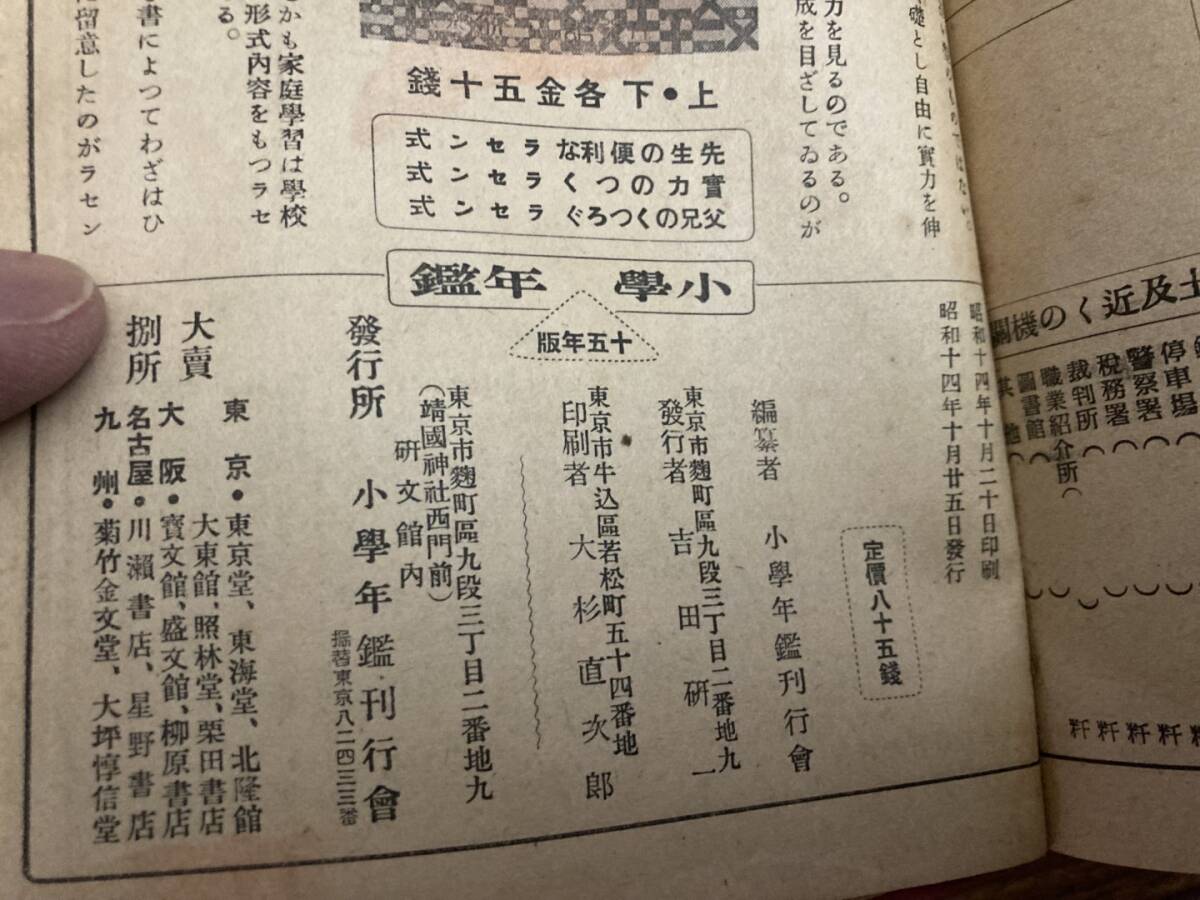 礎とし自由に實力を伸
力を見るのである。
成を目ざしてゐるのが
上・下 各金五十錢
先生の便利なラセン式
實力のつくラセン式
父兄のくつろぐラセン式
かも家庭學習は學校
形式内容をもつラセ
る。
書によつてわざはひ
留意したのがラセン
小學年鑑
十五年版
昭和十四年十月二十日印刷
昭和十四年十月廿五日發行
定價八十五錢
編纂者 小學年鑑刊行會
東京市麴町區九段三丁目二番地九
發行者 吉田研一
東京市牛込區若松町五十四番地
印刷者 大杉直次郎
東京市麴町區九段三丁目二番地九
(靖國神社西門前)
研文館内
發行所 小學年鑑刊行會
振替東京八二四三三番
大賣捌所
東京・東京堂、東海堂、北隆館
大東館、照林堂、栗田書店
大阪・寶文館、盛文館、柳原書店
名古屋・川瀨書店、星野書店
九州・菊竹金文堂、大坪惇信堂
土及近くの機關
停車場
警察署
稅務署
裁判所
職業紹介所
圖書館
其他
粁 粁 粁 粁